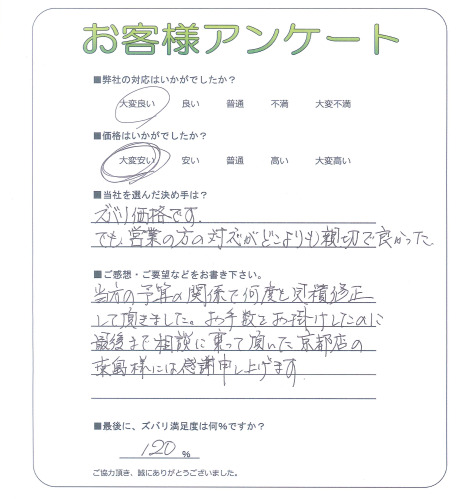 お客様アンケート
■弊社の対応はいかがでしたか？
大変良い 良い 普通 不満 大変不満
■価格はいかがでしたか？
大変安い 安い 普通 高い 大変高い
■当社を選んだ決め手は？
ズバリ価格です.
でも、営業の方の対応がどこよりも親切で良かった.
■ご感想・ご要望などをお書き下さい。
当方の予算の関係で何度も見積修正
して頂きました。お手数をお掛けしたのに
最後まで相談に乗って頂いた京都店の
様には感謝申し上げます.
■最後に、ズバリ満足度は何%ですか？
120 %
ご協力頂き、誠にありがとうございました。